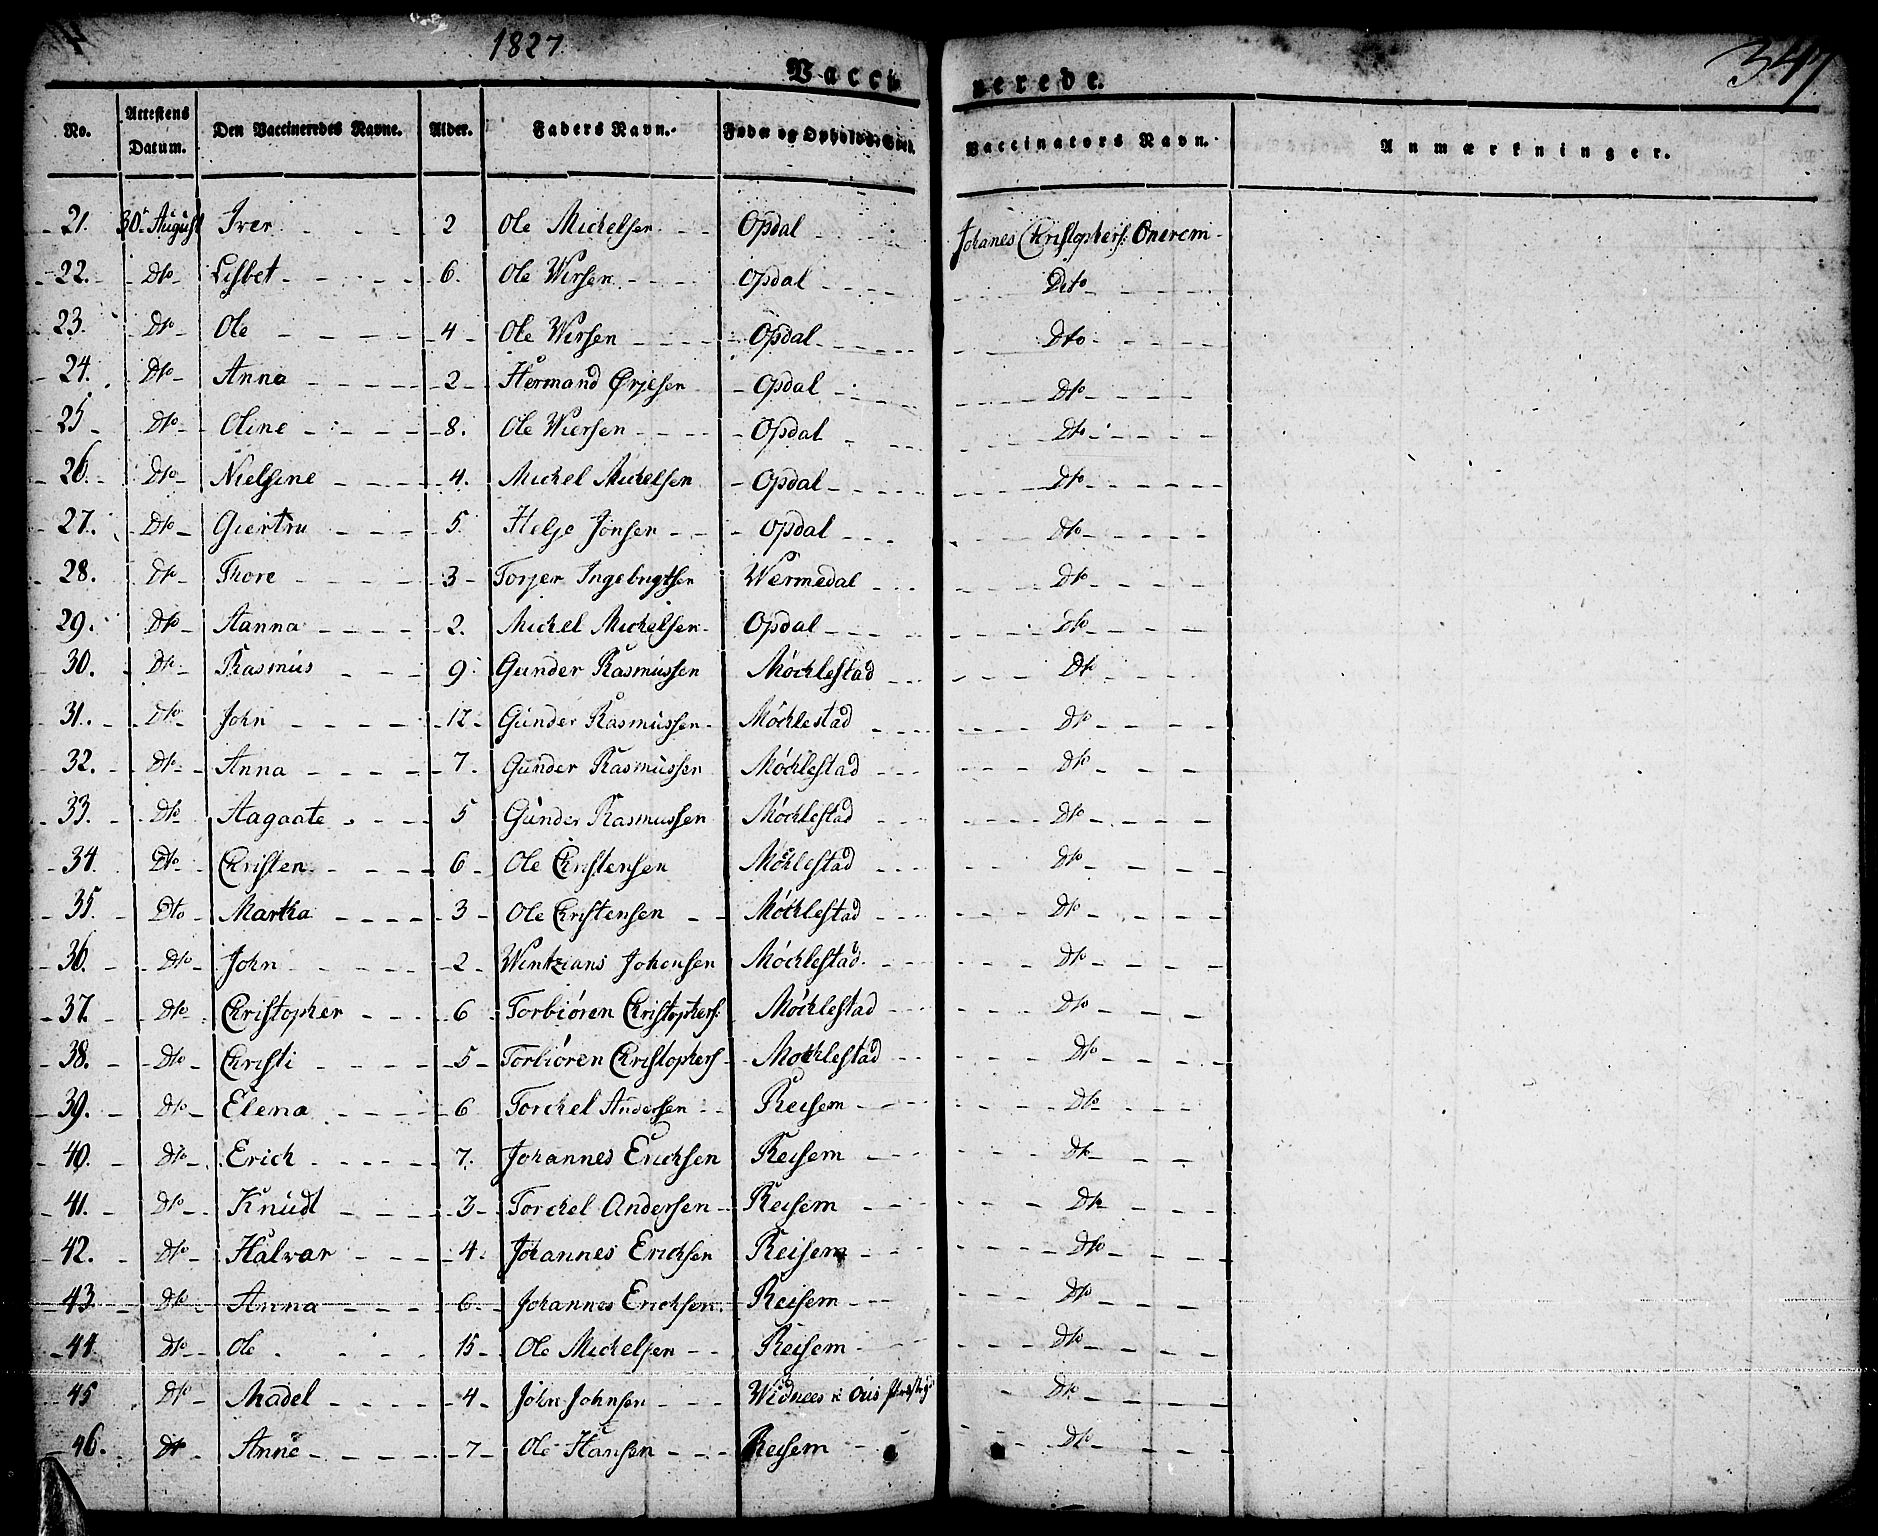 1827
347
Vaccinerede.
No. Attestens Datum. Den Vaccineredes Navne. Alder. Faders Navn. Føde og Opholds-Sted. Vaccinators Navn. Anmærkninger.
21. 30 August Iver 2 Ole Michelsen Opdal Johanes Christophers: Onerem
22. Dto Lisbet 6. Ole Wersen Opdal Dito
23. Dto Ole 4 Ole Wersen Opdal Dto
24. Dto Anna 2 Hermand Ørjesen Opdal Dto
25 Dto Oline 8. Ole Wiersen Opdal Dto
26. Dto Nielsine 4. Michel Michelsen Opdal Dto
27. Dto Giertru 5. Helje Jonsen Opdal Dto
28. Dto Thore 3 Torjer Ingebrigtsen Wermedal Dto
29. Dto Aanna 2. Michel Michelsen Opdal Dto
30. Dto Rasmus 9 Gunder Rasmussen Möchlestad Dto
31. Dto John 12 Gunder Rasmussen Möchlestad Dto
32. Dto Anna 7. Gunder Rasmussen Möchlestad Dto
33. Dto Aagaate 5 Gunder Rasmussen Möchlestad Dto
34. Dto Christen 6 Ole Christensen Möchlestad Dto
35. Dto Martha 3 Ole Christensen Möchlestad Dto
36. Dto John 2 Wintzians Johensen Möchlestad Dto
37. Dto Christopher 6 Torbiören Christophers: Möchlestad Dto
38. Dto Christi 5 Torbiören Christophers Mochlestad Dto
39. Dto Elena 6 Torchel Andersen Reisem Dto
40. Dto Erich 7. Johannes Erichsen Reisem Dto
41. Dto Knudt 3 Torchel Andersen Reisem Dto
42. Dto Halvar 4. Johannes Erichsen Reisem Dto
43. Dto Anna 6 Johannes Erichsen Reisem Dto
44. Dto Ole 15 Ole Michelsen Reisem Dto
45 Dto Madel 4 John Johnsen Widnees Dto
46. Dto Anne 7 Ole Hansen Reisem Dto